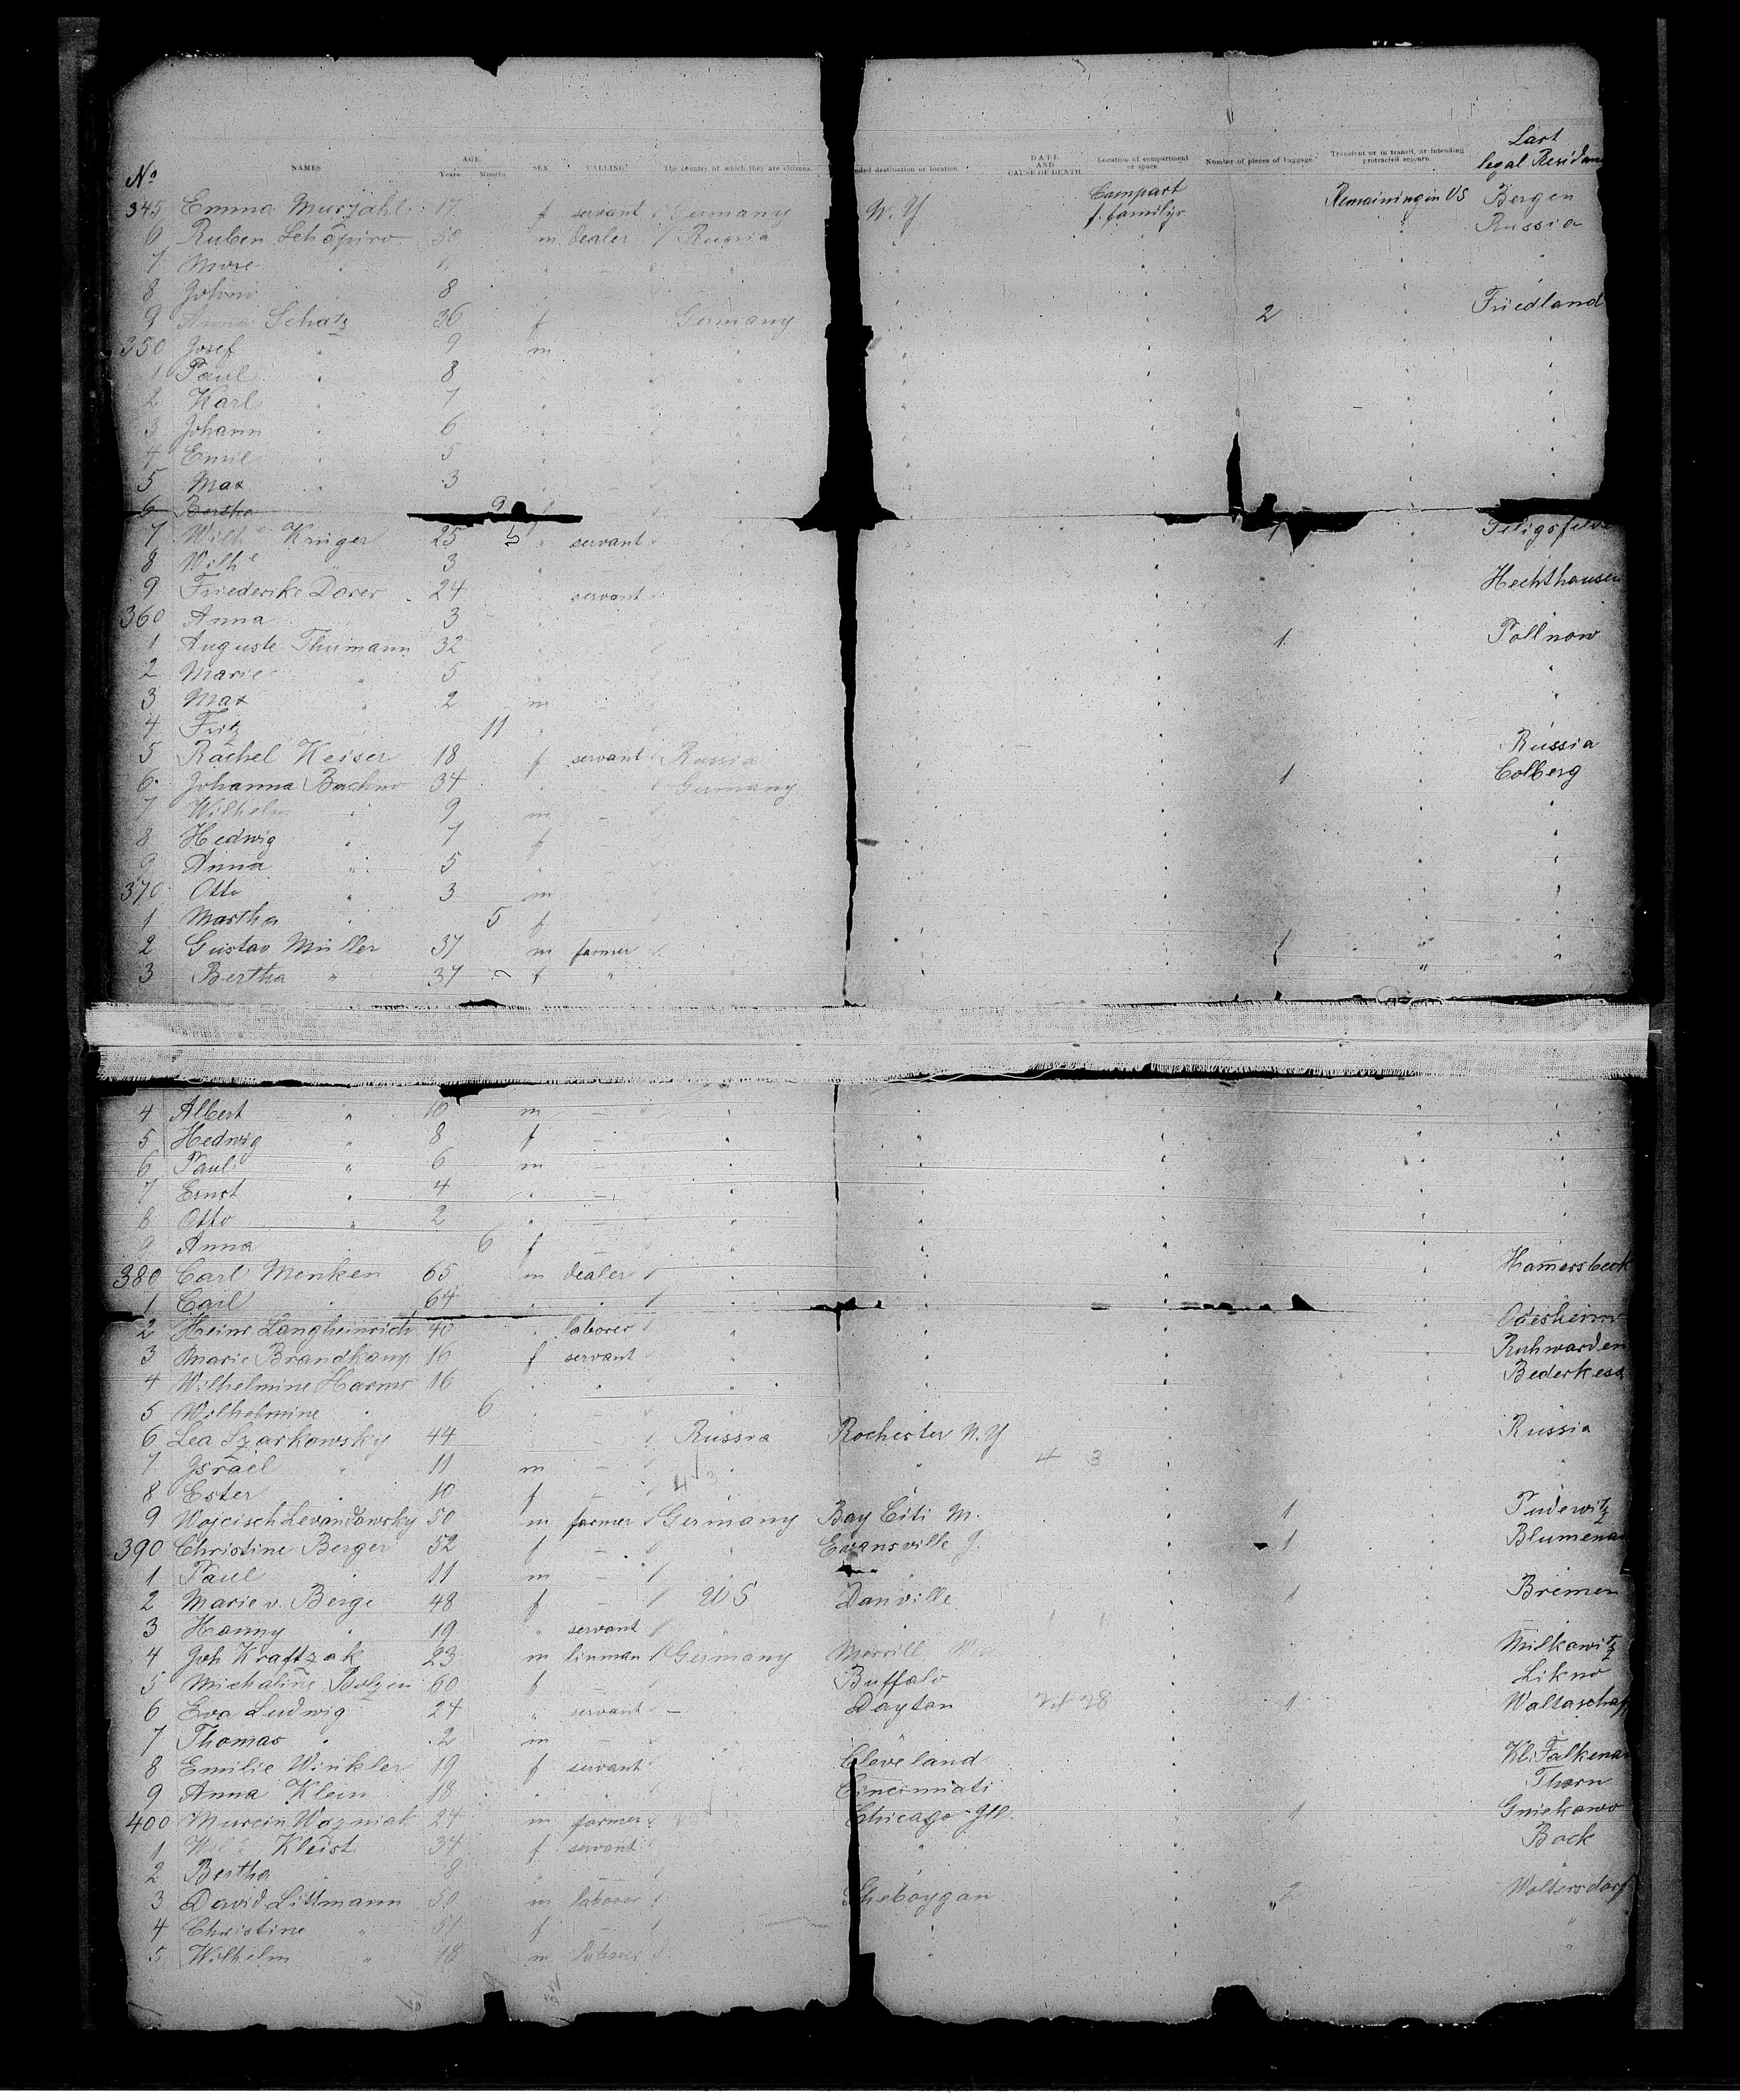 No NAMES AGE Years Months SEX CALLING The country of which they are citizens. nded destination or location DATE AND CAUSE OF DEATH Location of compartment or space. Number of pieces of baggage. Transient or in transit, or intending protracted sojourn. Last legal Residen
345 Emma Murjahl 17 f servant Germany N. Y Compart f. familys Remaining in US Bergen
6 Ruben Schapiro 50 m dealer Russia " " " Russia
7 Mose " " "
8 Johni " 8
9 Anna Schatz 36 f Germany 2 Friedland
350 Josef " 9 m
1 Paul " 8
2 Karl " 7
3 Johann " 6
4 Emil " 5
5 Max " 3
6 Bertha 9
7 Wilhe Kruger 25 servant 1
8 Wilhe " 3
9 Friederike Dorer 24 servant Hechthausen
360 Anna 3
1 Auguste Thumann 32 1 Pollnow
2 Marie " 5 "
3 Max " 2 m "
4 Fritz 11
5 Rachel Keiser 18 f servant Russia Russia
6 Johanna Buchno 34 Germany 1 Colberg
7 Wilhelm " 9 m
8 Hedwig " 7 f
9 Anna " 5
370 Otto " 3 m
1 Martha " 5 f
2 Gustav Müller 37 m farmer 1 " "
3 Bertha " 37 f " "
4 Albert " 10 m - " "
5 Hedwig " 8 f - " "
6 Paul " 6 m - "
7 Ernst " 4 " - "
8 Otto " 2 " - "
9 Anna 6 f - "
380 Carl Menken 65 m dealer " Hamersbeck
1 Carl " 64 " "
2 Heinr Langheinrich 40 " laborer "
3 Marie Brandkamp 16 f servant " Ruhwarden
4 Wilhelmine Harms 16 " " " Bederkesa
5 Wilhelmine " 6
6 Lea Szarkowsky 44 - Russia Rochester N.Y Russia
7 Israel " 11 m - " " 4 3
8 Ester " 10 f -
9 Wojcisch Levandowsky 50 m farmer Germany Bay Citi M. 1 Pudewitz
390 Christine Berger 52 f - " Evansville J. 1 Blumenau
1 Paul " 11 m -
2 Marie v. Berge 48 f - US Danville 1 Bremen
3 Hanny " 19 " servant "
4 Joh Kraftzak 23 m linman Germany Merrill Wis Milkowitz
5 Michaline Bolzin 60 f - Buffalo Likno
6 Eva Ludwig 24 " servant - Dayton 1 Waltaschaf
7 Thomas " 2 m - "
8 Emilie Winkler 19 f servant Cleveland Kl. Falkenau
9 Anna Klein 18 " " Cincinnati Thorn
400 Murcin Wozniak 24 m farmer Chicago Ill. 1 Gniekowo
1 Kleist 34 f servant " Bock
2 Bertha " 8 "
3 David Littmann 50 m laborer Sheboygan 2 Woltersdorf
4 Christine " 51 f - " "
5 Wilhelm " 18 m laborer " "